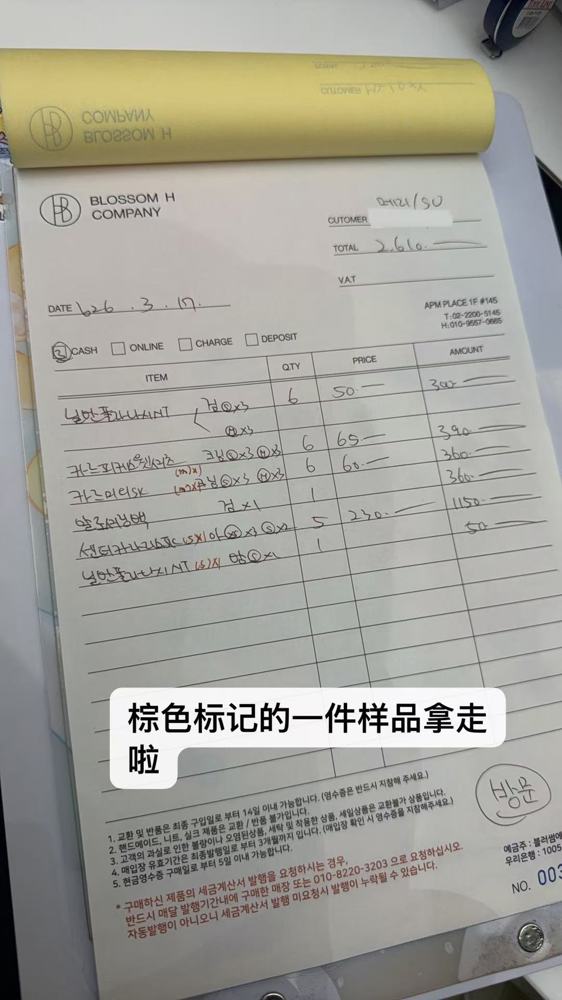 COMPANY
BLOSSOM H
CUTOMER
BLOSSOM H
COMPANY
CUTOMER
TOTAL 2,610.
VAT
DATE 626. 3. 17.
APM PLACE 1F #145
T:02-2200-5145
H:010-9557-0665
CASH ONLINE CHARGE DEPOSIT
ITEM QTY PRICE AMOUNT
6 50 300
6 65 390
6 60 360
검 x1 1 360
5 230 1150
1 50
棕色标记的一件样品拿走
啦
1. 교환 및 반품은 최종 구입일로 부터 14일 이내 가능합니다. (영수증은 반드시 지참해 주세요.)
2. 핸드메이드, 니트, 실크 제품은 교환 / 반품 불가입니다.
3. 고객의 과실로 인한 불량이나 오염된상품, 세탁 및 착용한 상품, 세일상품은 교환불가 상품입니다.
4. 매입장 유효기간은 최종발행일로 부터 3개월까지 입니다. (매입장 확인 시 영수증을 지참해주세요.)
5. 현금영수증 구매일로 부터 5일 이내 가능합니다.
* 구매하신 제품의 세금계산서 발행을 요청하시는 경우,
반드시 매달 발행기간내에 구매한 매장 또는 010-8220-3203 으로 요청하십시오
자동발행이 아니오니 세금계산서 발행 미요청시 발행이 누락될 수 있습니다.
방문
예금주 : 블러썸에
우리은행 : 1005
NO. 003